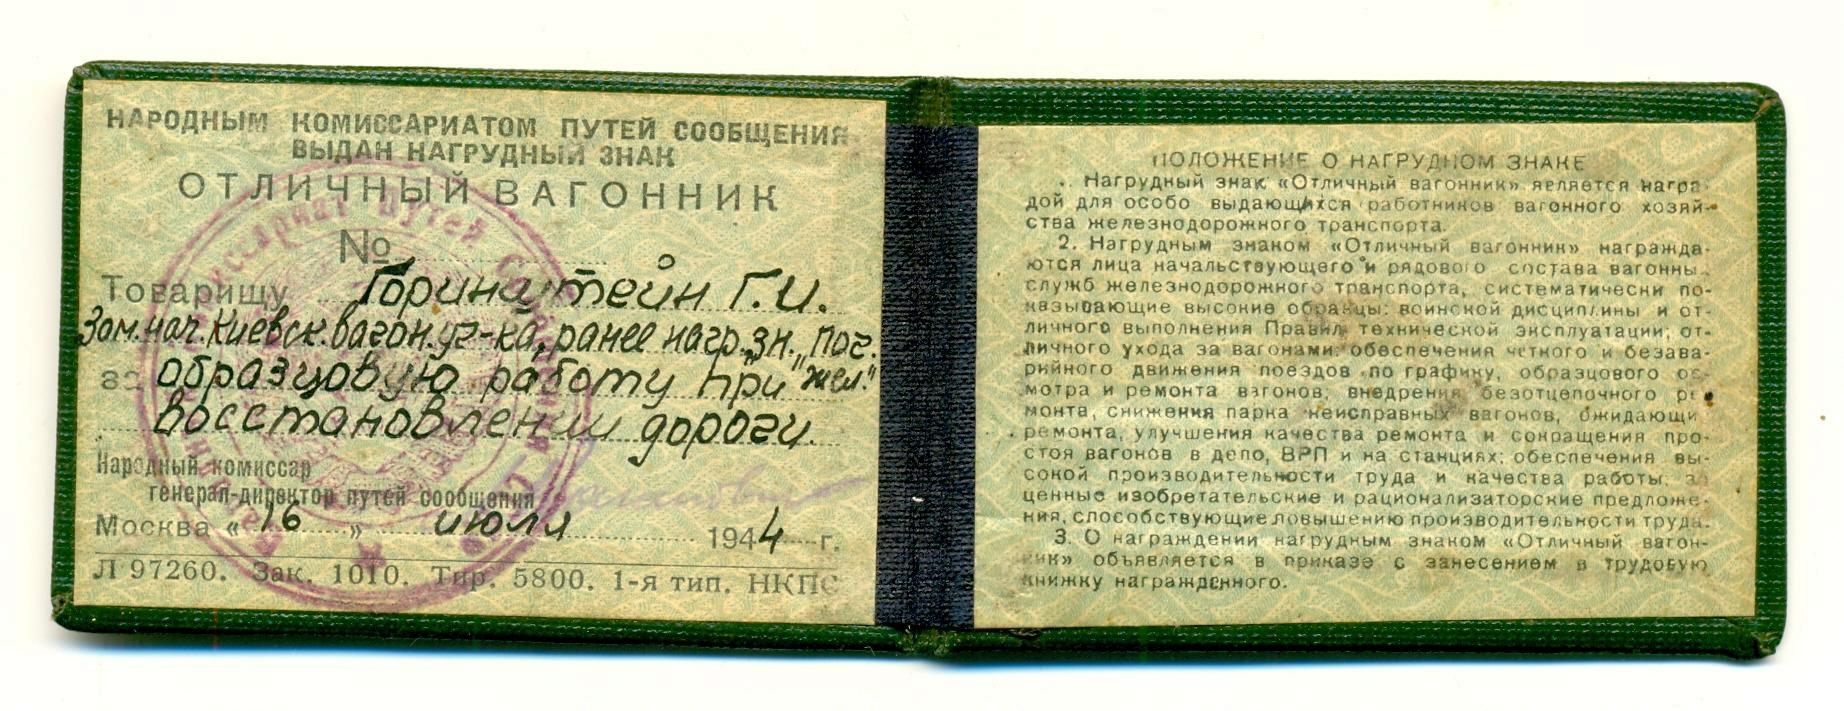 НАРОДНЫМ КОМИССАРИАТОМ ПУТЕЙ СООБЩЕНИЯ
ВЫДАН НАГРУДНЫЙ ЗНАК
ОТЛИЧНЫЙ ВАГОННИК
№
Товарищу Горинштейн Г.И.
Зам.нач.Киевск.вагон.уч-ка, ранее нагр.зн. "Поч.
за образцовую работу при "жел."
восстановлении дороги.
Народный комиссар
генерал-директор путей сообщения
Москва «16» июля 1944 г.
Л 97260. Зак. 1010. Тир. 5800. 1-я тип. НКПС
ПОЛОЖЕНИЕ О НАГРУДНОМ ЗНАКЕ
. Нагрудный знак «Отличный вагонник» является награ-
дой для особо выдающихся работников вагонного хозяй-
ства железнодорожного транспорта.
2. Нагрудным знаком «Отличный вагонник» награжда-
ются лица начальствующего и рядового состава вагонны
служб железнодорожного транспорта, систематически по-
казывающие высокие образцы: воинской дисциплины и от-
личного выполнения Правил технической эксплуатации; от-
личного ухода за вагонами; обеспечения четкого и безава-
рийного движения поездов по графику, образцового ос-
мотра и ремонта вагонов; внедрения безотцепочного ре-
монта, снижения парка неисправных вагонов, ожидающи
ремонта, улучшения качества ремонта и сокращения про-
стоя вагонов в депо, ВРП и на станциях; обеспечения вы-
сокой производительности труда и качества работы; за
ценные изобретательские и рационализаторские предложе-
ния, способствующие повышению производительности труда.
3. О награждении нагрудным знаком «Отличный вагон-
ник» объявляется в приказе с занесением в трудовую
книжку награжденного.